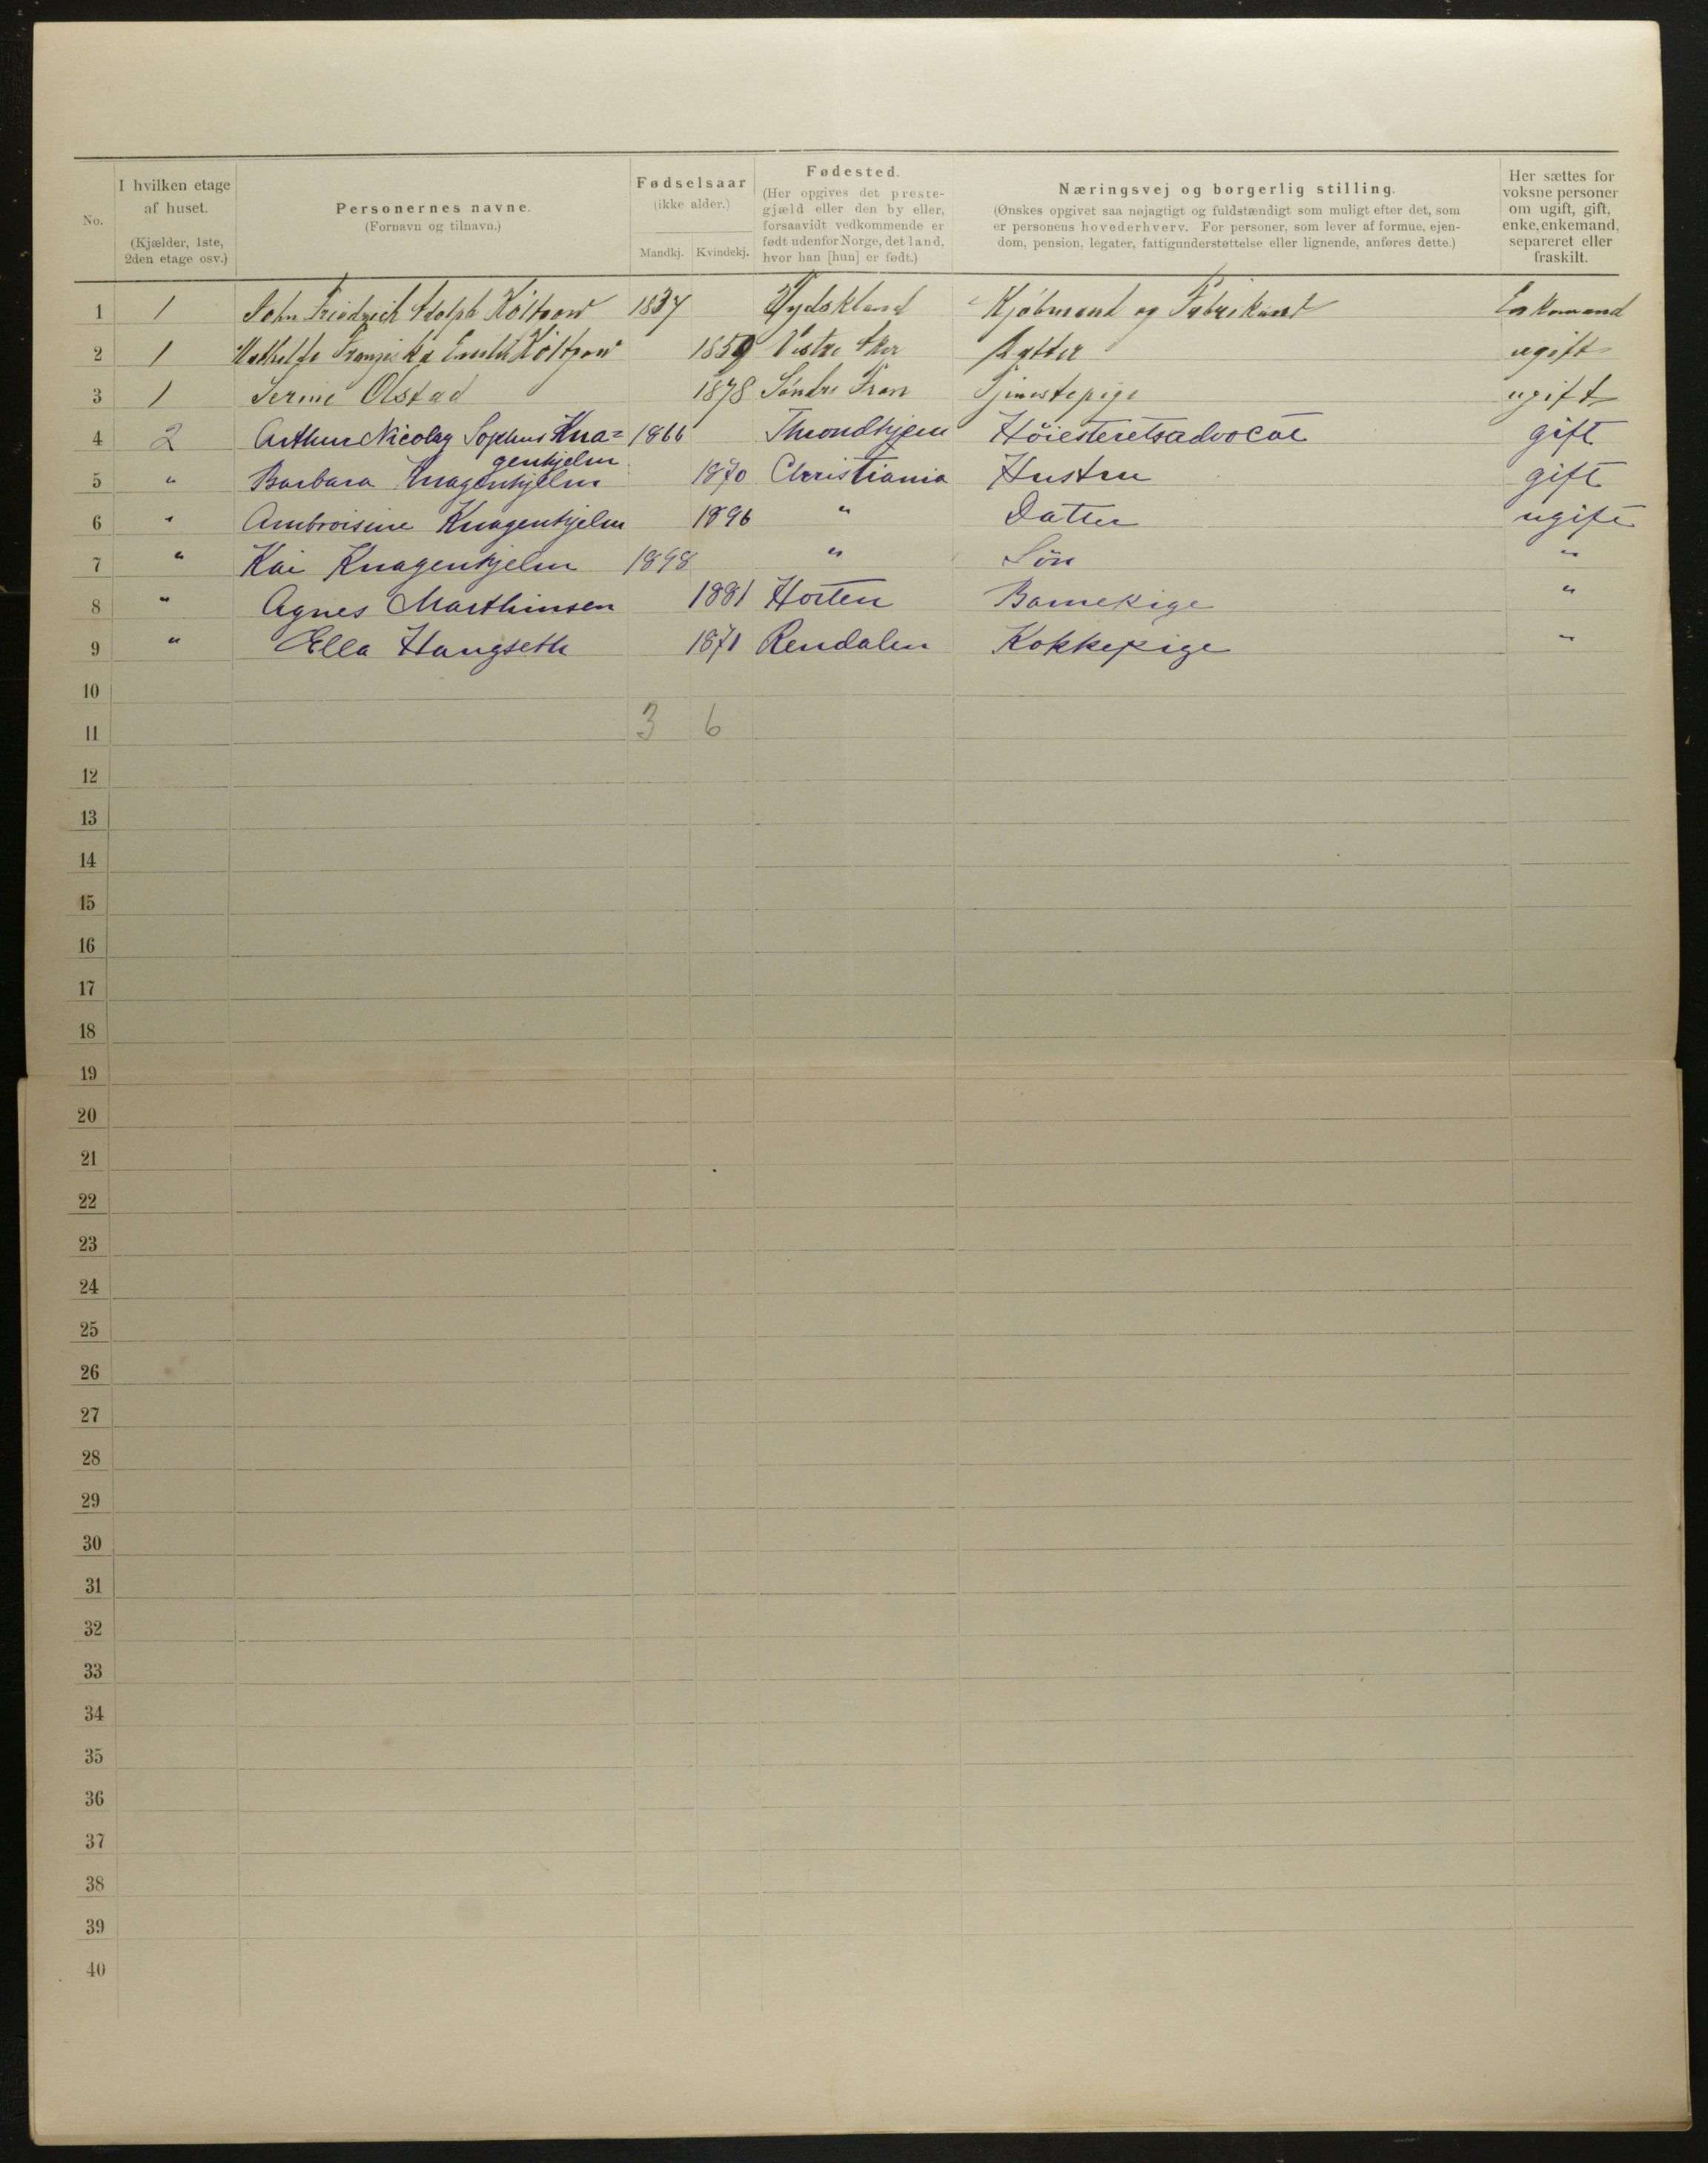 No.
I hvilken etage af huset. (Kjælder, 1ste, 2den etage osv.)
Personernes navne. (Fornavn og tilnavn.)
Fødselsaar (ikke alder.) Mandkj. Kvindekj.
Fødested. (Her opgives det prestegjæld eller den by eller, forsaavidt vedkommende er født udenfor Norge, det land, hvor han [hun] er født.)
Næringsvej og borgerlig stilling. (Ønskes opgivet saa nøjagtigt og fuldstændigt som muligt efter det, som er personens hovederhverv. For personer, som lever af formue, ejendom, pension, legater, fattigunderstøttelse eller lignende, anføres dette.)
Her sættes for voksne personer om ugift, gift, enke, enkemand, separeret eller fraskilt.
1 1 John Friedrich Adolph Költzow 1837 Tydskland Kjøbmand og Fabrikant Enkemand
2 1 Mathilde Franziska Emilie Költzow 1859 Vestre Aker Datter ugift
3 1 Serine Olstad 1878 Søndre Fron Tjenestepige ugift
4 2 Arthur Nicolay Sophus Kna= 1866 Throndhjem Höiesteretsadvocat gift
genhjelm
5 " Barbara Knagenhjelm 1870 Christiania Hustru gift
6 " Ambroisine Knagenhjelm 1896 " Datter ugift
7 " Kai Knagenhjelm 1898 " Sön "
8 " Agnes Marthinsen 1881 Horten Barnepige "
9 " Ella Haugseth 1871 Rendalen Kokkepige "
10
11 3 6
12
13
14
15
16
17
18
19
20
21
22
23
24
25
26
27
28
29
30
31
32
33
34
35
36
37
38
39
40